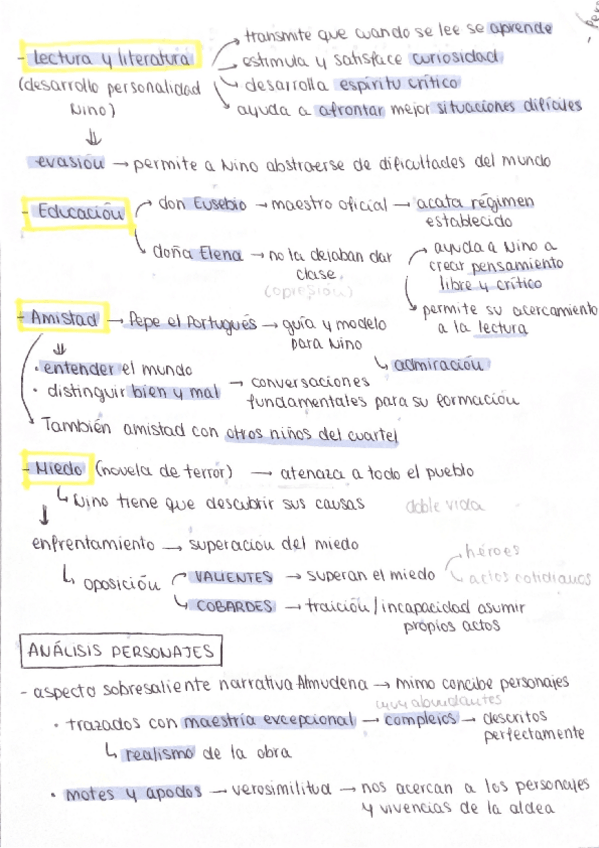 → transmite que cuando se lee se aprende
- Lectura y literatura → estimula y satisface curiosidad
(desarrollo personalidad → desarrolla espíritu crítico
Nino) → ayuda a afrontar mejor situaciones difíciles
⇓
evasión → permite a Nino abstraerse de dificultades del mundo
- Educación → don Eusebio → maestro oficial → acata régimen
establecido
→ doña Elena → no la dejaban dar
clase
(opresión)
→ ayuda a Nino a
crear pensamiento
libre y crítico
→ permite su acercamiento
a la lectura
- Amistad → Pepe el Portugués → guía y modelo
para Nino
↳ admiración
⇓
· entender el mundo
· distinguir bien y mal → conversaciones
fundamentales para su formación
→ También amistad con otros niños del cuartel
- Miedo (novela de terror) → atenaza a todo el pueblo
↳ Nino tiene que descubrir sus causas doble vida
↓
enfrentamiento → superación del miedo
↳ oposición → VALIENTES → superan el miedo → héroes
→ actos cotidianos
↳ COBARDES → traición / incapacidad asumir
propios actos
ANÁLISIS PERSONAJES
- aspecto sobresaliente narrativa Almudena → mimo concibe personajes
muy abundantes
· trazados con maestría excepcional → complejos → descritos
perfectamente
↳ realismo de la obra
· motes y apodos → verosimilitud → nos acercan a los personajes
y vivencias de la aldea